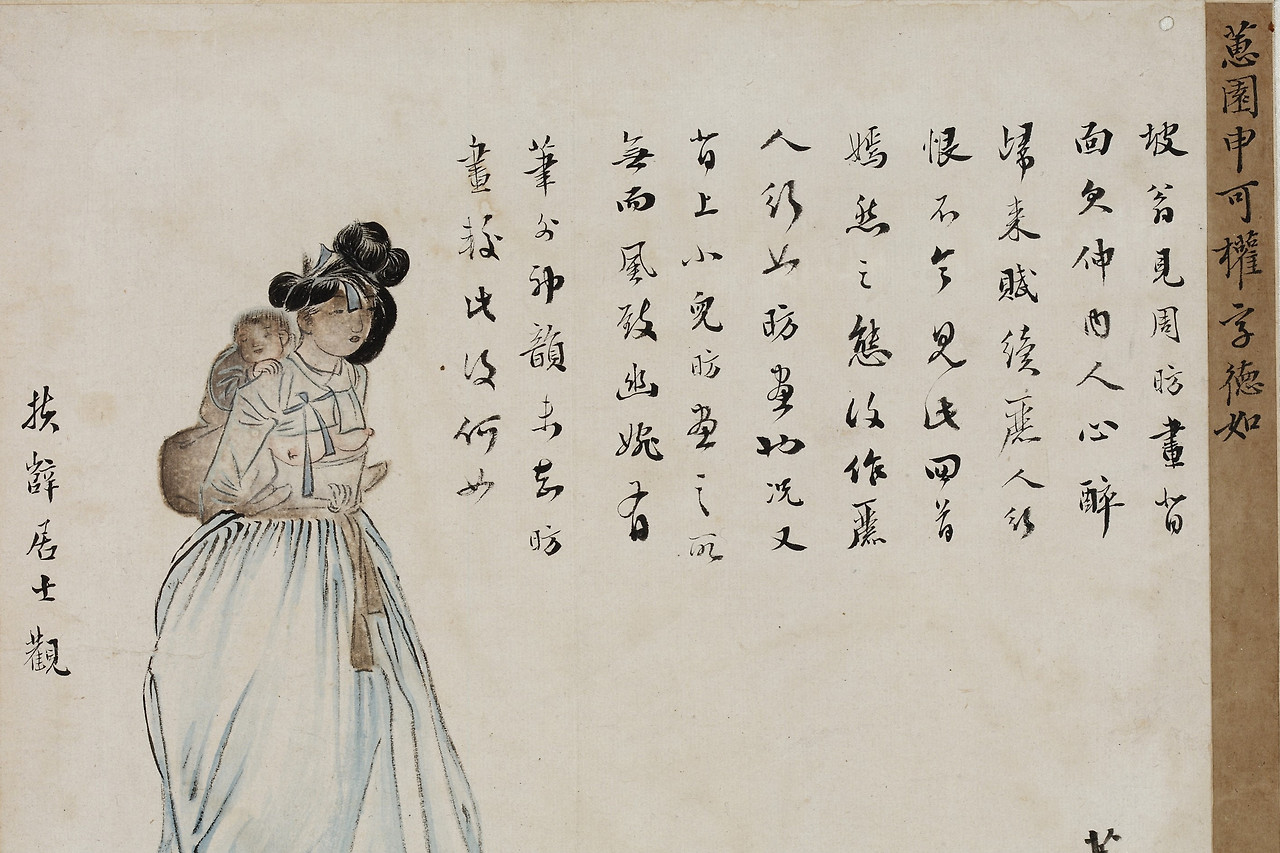 蕙園申可權字德如
坡翁見周昉畫背
面欠伸內人心醉
歸來賦續麗人行
恨不令見此回首
嫣然之態復作麗
人行上昉畫也況又
背上小兒昉畫之所
無而風致幽婉有
筆外神韻未知昉
畫較此復何如
扶辥居士觀